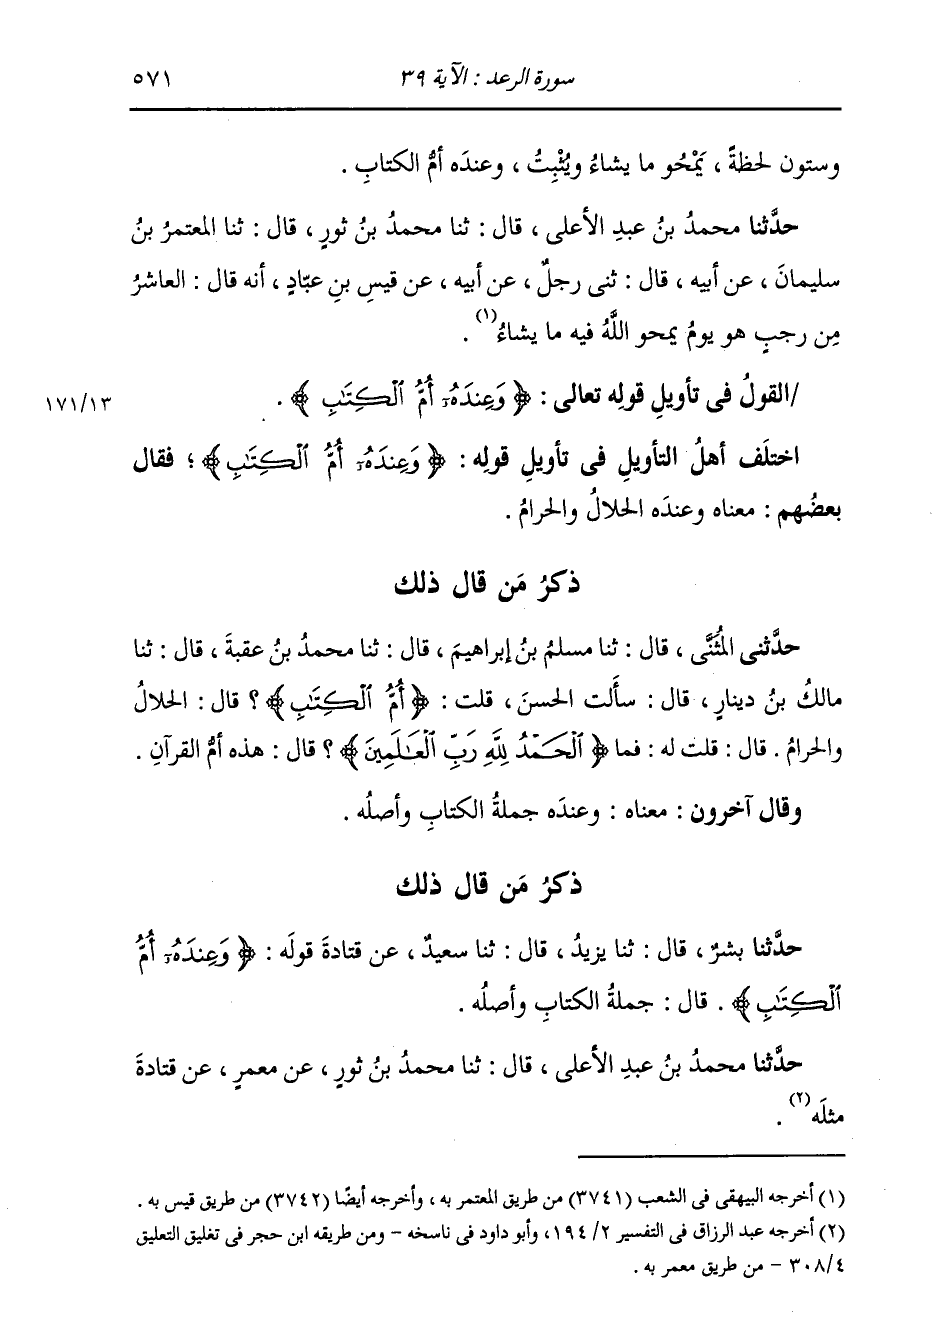 سورة الرعد : الآية ٣٩
٥٧١
وستون لحظةً ، يَمْحُو ما يشاءُ ويُثْبِتُ ، وعندَه أمُّ الكتابِ .
حدَّثنا محمدُ بنُ عبدِ الأعلى ، قال : ثنا محمدُ بنُ ثورٍ ، قال : ثنا المعتمرُ بنُ
سليمانَ ، عن أبيه ، قال : ثنى رجلٌ ، عن أبيه ، عن قيسِ بنِ عبّادٍ ، أنه قال : العاشرُ
مِن رجبٍ هو يومُ يمحو اللَّهُ فيه ما يشاءُ(١) .
/القولُ فى تأويلِ قولِه تعالى : ﴿ وَعِندَهُۥٓ أُمُّ ٱلْكِتَٰبِ ﴾ .
١٧١/١٣
اختلَف أهلُ التأويلِ فى تأويلِ قولِه : ﴿ وَعِندَهُۥٓ أُمُّ ٱلْكِتَٰبِ ﴾ ؛ فقال
بعضُهم : معناه وعندَه الحلالُ والحرامُ .
ذكرُ مَن قال ذلك
حدَّثنى المُثَنَّى ، قال : ثنا مسلمُ بنُ إبراهيمَ ، قال : ثنا محمدُ بنُ عقبةَ ، قال : ثنا
مالكُ بنُ دينارٍ ، قال : سأَلت الحسنَ ، قلت : ﴿ أُمُّ ٱلْكِتَٰبِ ﴾ ؟ قال : الحلالُ
والحرامُ . قال : قلت له : فما ﴿ ٱلْحَمْدُ لِلَّهِ رَبِّ ٱلْعَٰلَمِينَ ﴾ ؟ قال : هذه أمُّ القرآنِ .
وقال آخرون : معناه : وعندَه جملةُ الكتابِ وأصلُه .
ذكرُ مَن قال ذلك
حدَّثنا بشرٌ ، قال : ثنا يزيدُ ، قال : ثنا سعيدٌ ، عن قتادةَ قولَه : ﴿ وَعِندَهُۥٓ أُمُّ
ٱلْكِتَٰبِ ﴾ . قال : جملةُ الكتابِ وأصلُه .
حدَّثنا محمدُ بنُ عبدِ الأعلى ، قال : ثنا محمدُ بنُ ثورٍ ، عن معمرٍ ، عن قتادةَ
مثلَه(٢) .
(١) أخرجه البيهقى فى الشعب (٣٧٤١) من طريق المعتمر به ، وأخرجه أيضًا (٣٧٤٢) من طريق قيس به .
(٢) أخرجه عبد الرزاق فى التفسير ٢/ ١٩٤، وأبو داود فى ناسخه – ومن طريقه ابن حجر فى تغليق التعليق
٣٠٨/٤ – من طريق معمر به .